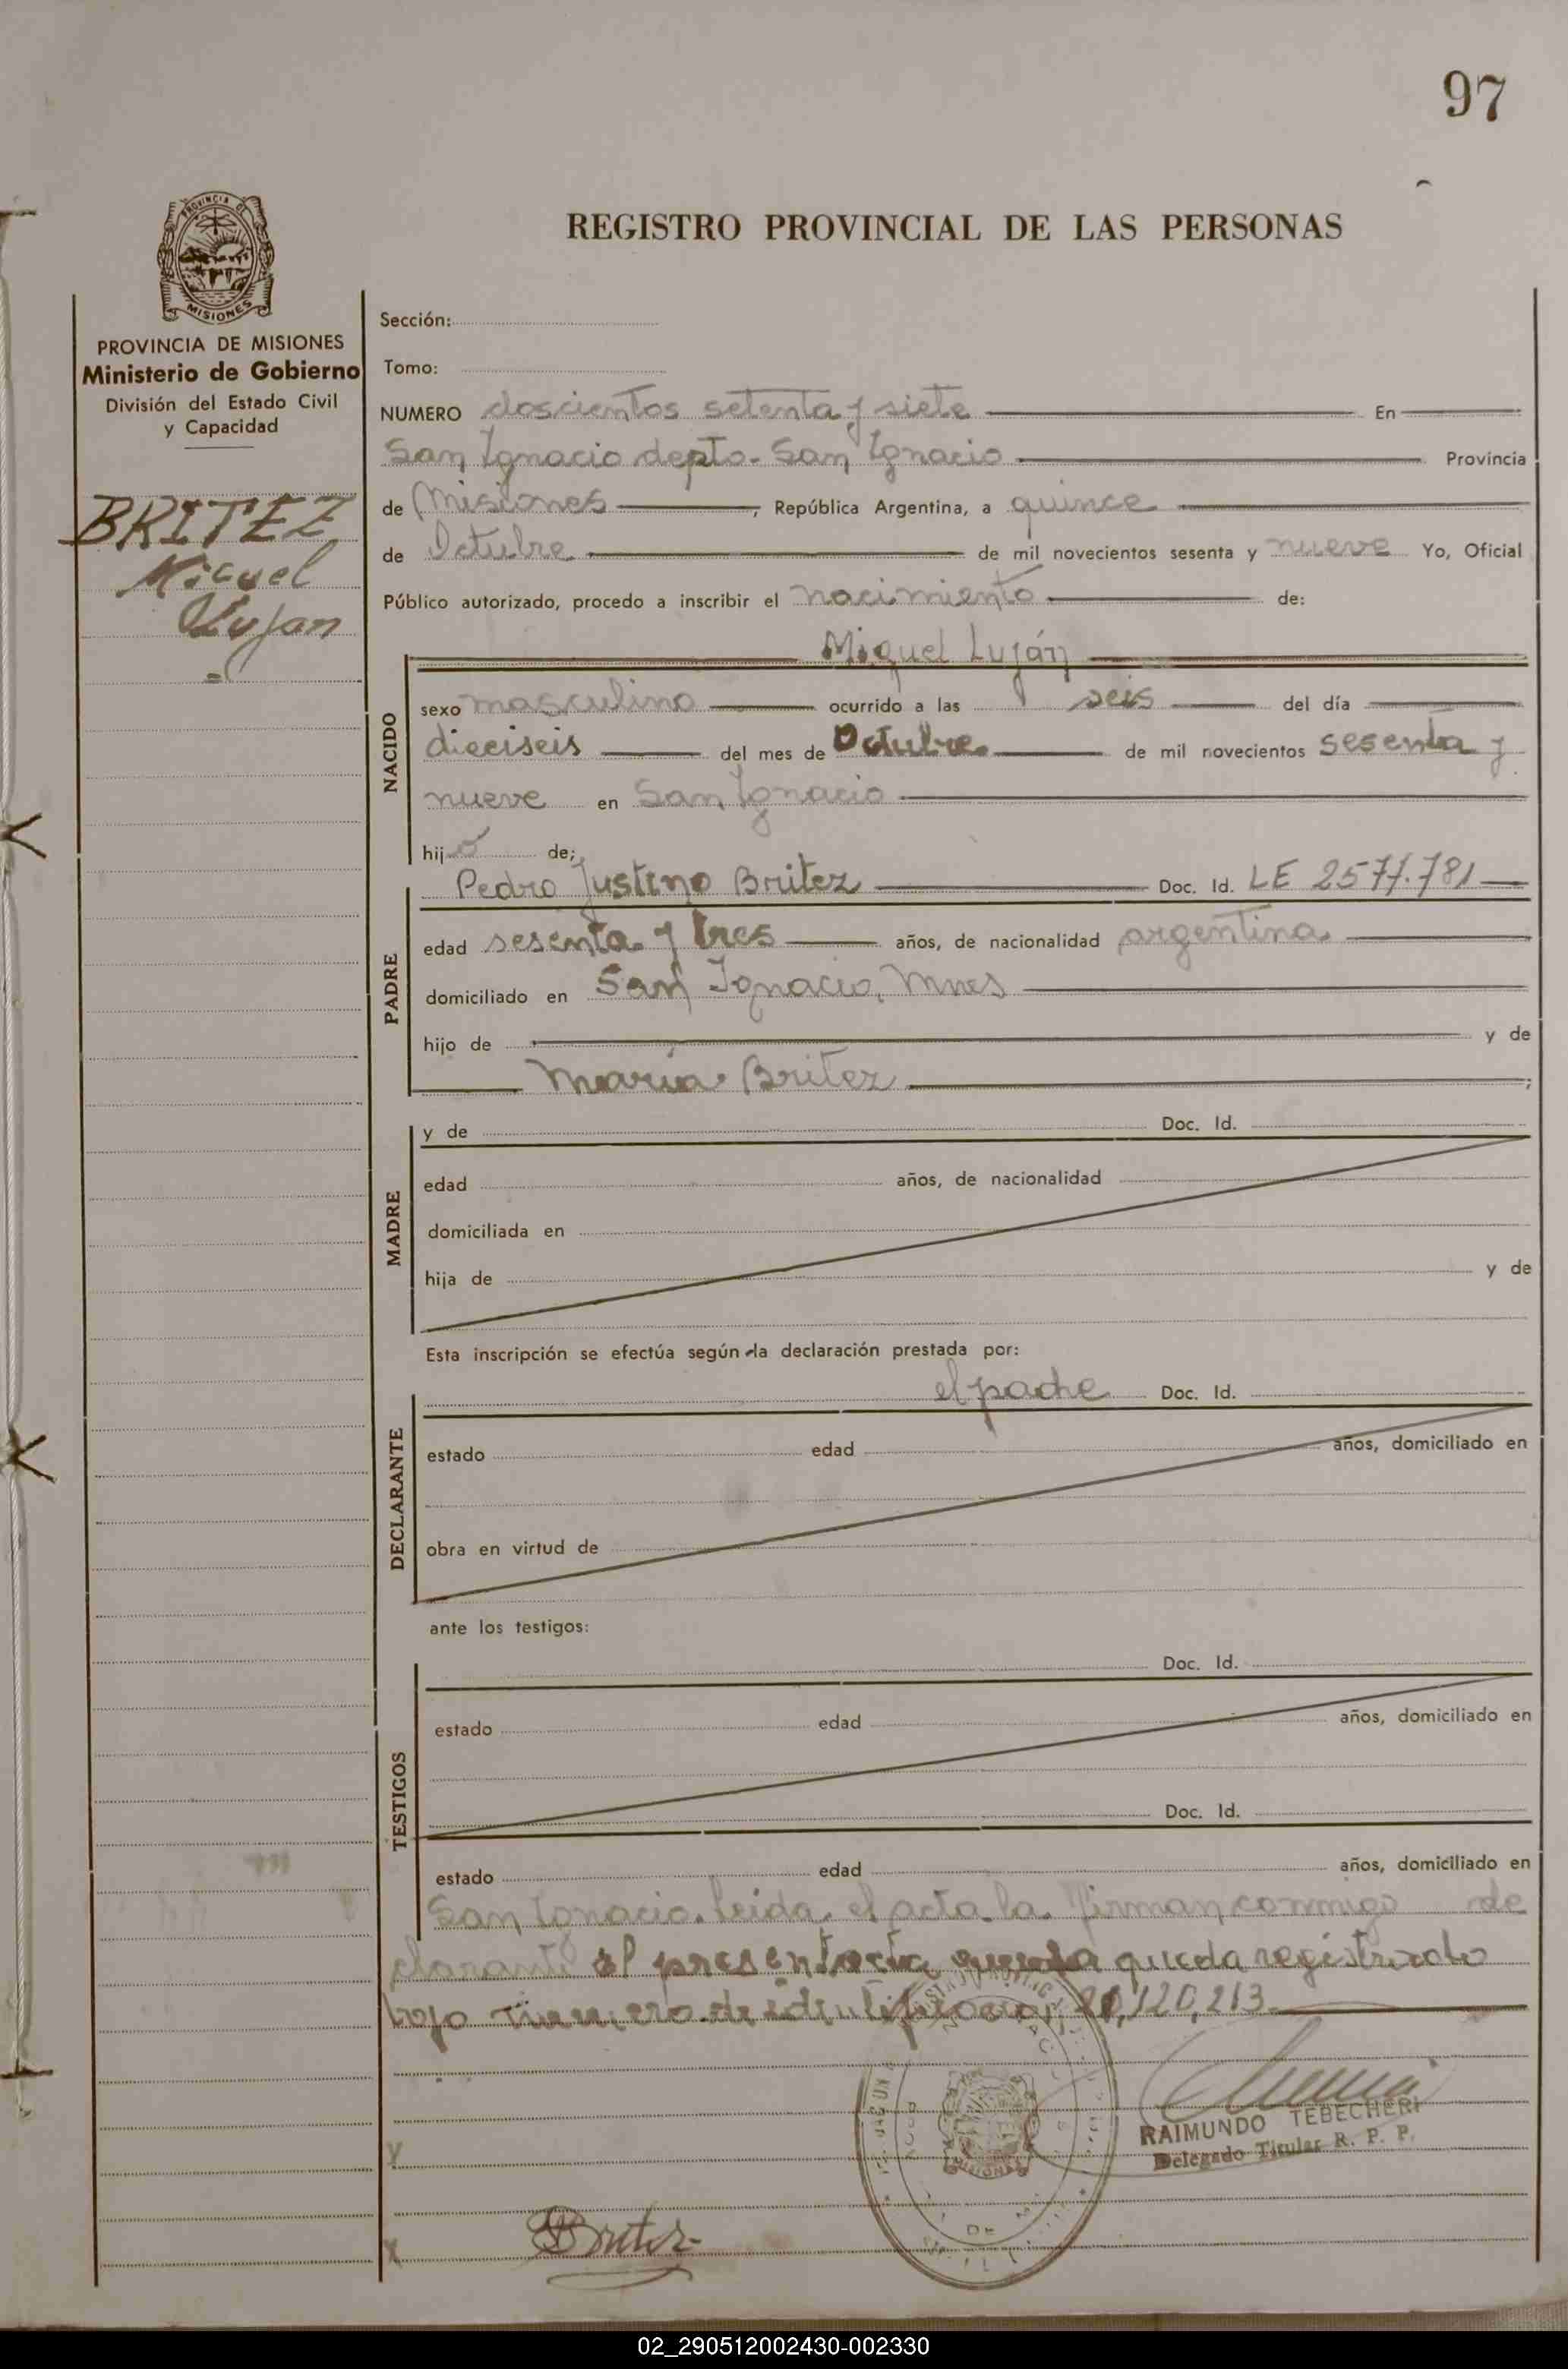 97
PROVINCIA DE
MISIONES
REGISTRO PROVINCIAL DE LAS PERSONAS
PROVINCIA DE MISIONES
Ministerio de Gobierno
División del Estado Civil
y Capacidad
BRITEZ
Miguel
Lujan
Sección:
Tomo:
NUMERO doscientos setenta y siete En
San Ignacio depto. San Ignacio Provincia
de Misiones, República Argentina, a quince
de Octubre de mil novecientos sesenta y nueve Yo, Oficial
Público autorizado, procedo a inscribir el nacimiento de:
Miguel Luján
NACIDO
sexo masculino ocurrido a las seis del día
dieciseis del mes de Octubre de mil novecientos sesenta y
nueve en San Ignacio
hijo de;
PADRE
Pedro Justino Britez Doc. Id. LE 2577.781
edad sesenta y tres años, de nacionalidad argentina
domiciliado en San Ignacio, Mnes
hijo de y de
María Britez
MADRE
y de Doc. Id.
edad años, de nacionalidad
domiciliada en
hija de y de
Esta inscripción se efectúa según la declaración prestada por:
DECLARANTE
el padre Doc. Id.
estado edad años, domiciliado en
obra en virtud de
ante los testigos:
TESTIGOS
Doc. Id.
estado edad años, domiciliado en
Doc. Id.
estado edad años, domiciliado en
San Ignacio. leida el acta la firman conmigo de
clarante el presente acta queda registrado
bajo numero de identificacion 120,213
MISIONES
DE
RAIMUNDO TEBECHERI
Delegado Titular R. P. P.
Britez
02_290512002430-002330